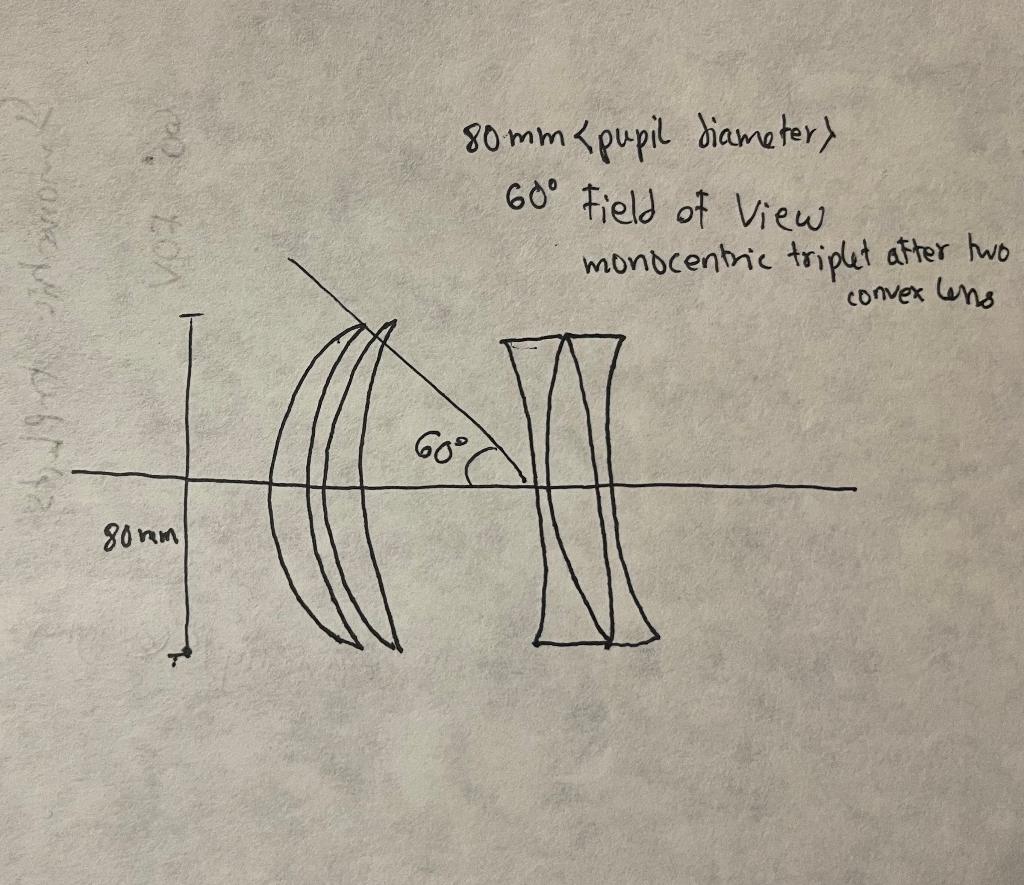 80mm <pupil diameter>
60° Field of View
monocentric triplet after two
convex lens
60°
80mm